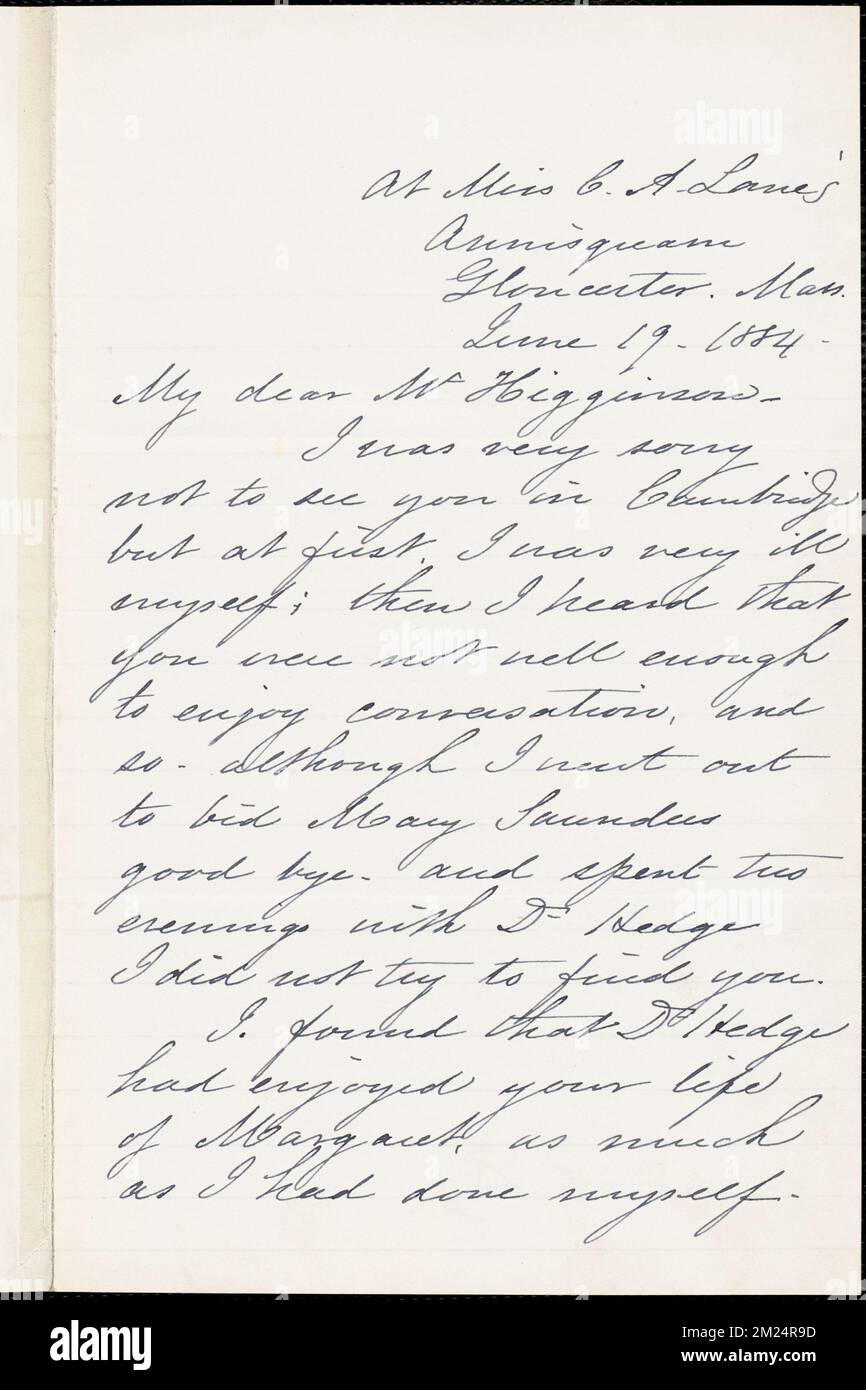 At Miss C. A. Lane's
Annisquam
Gloucester. Mass.
June 19 - 1884 -
My dear Mr Higginson -
I was very sorry
not to see you in Cambridge,
but at first, I was very ill
myself; then I heard that
you were not well enough
to enjoy conversation, and
so - although I went out
to bid Mary Saunders
good bye - and spent two
evenings with Dr Hedge
I did not try to find you.
I. found that Dr Hedge
had enjoyed your life
of Margaret, as much
as I had done myself -
alamy
Image ID: 2M24R9D
www.alamy.com